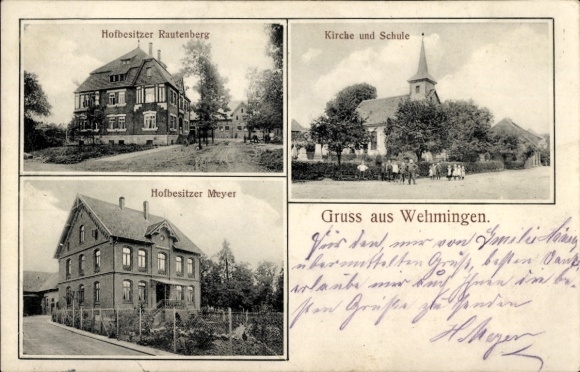 Hofbesitzer Rautenberg
Kirche und Schule
Hofbesitzer Meyer
Gruss aus Wehmingen.
Für den, mir von Emilie
übermittelten Gruß, besten Dank
erlaube mir auch Ihnen die be-
sten Grüße zu senden
H. Meyer